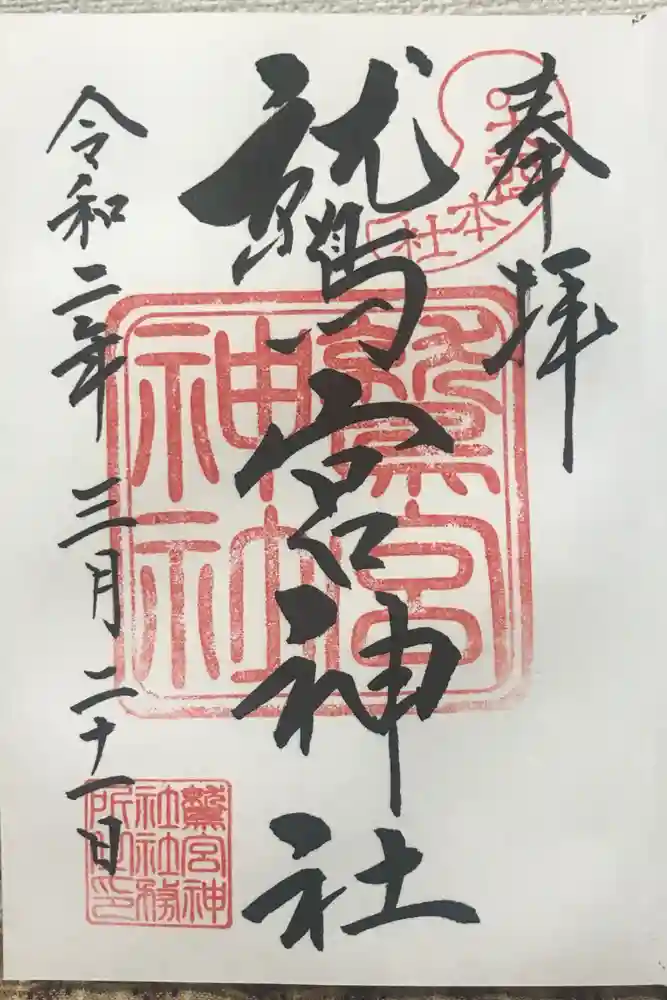 奉拝
本社
鷲宮神社
鷲宮
神社
令和二年三月二十一日
鷲宮神
社社務
所之印